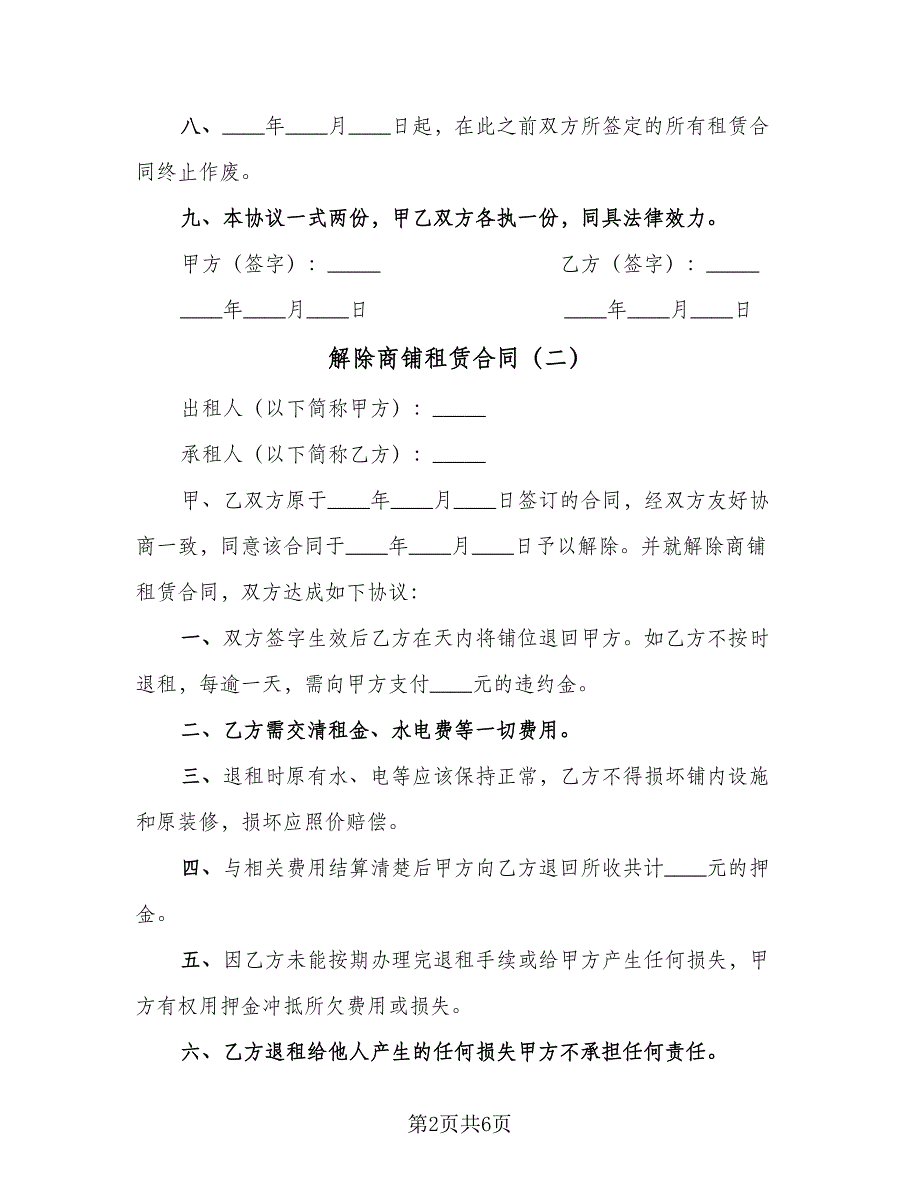 八、____年____月____日起，在此之前双方所签定的所有租赁合
同终止作废。
九、本协议一式两份，甲乙双方各执一份，同具法律效力。
甲方（签字）：_____ 乙方（签字）：_____
____年____月____日 ____年____月____日
解除商铺租赁合同（二）
出租人（以下简称甲方）：_____
承租人（以下简称乙方）：_____
甲、乙双方原于____年____月____日签订的合同，经双方友好协
商一致，同意该合同于____年____月____日予以解除。并就解除商铺
租赁合同，双方达成如下协议：
一、双方签字生效后乙方在天内将铺位退回甲方。如乙方不按时
退租，每逾一天，需向甲方支付____元的违约金。
二、乙方需交清租金、水电费等一切费用。
三、退租时原有水、电等应该保持正常，乙方不得损坏铺内设施
和原装修，损坏应照价赔偿。
四、与相关费用结算清楚后甲方向乙方退回所收共计____元的押
金。
五、因乙方未能按期办理完退租手续或给甲方产生任何损失，甲
方有权用押金冲抵所欠费用或损失。
六、乙方退租给他人产生的任何损失甲方不承担任何责任。
第2页共6页